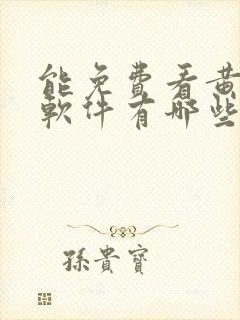 能免費看黃
軟件有哪些
孫貴寶